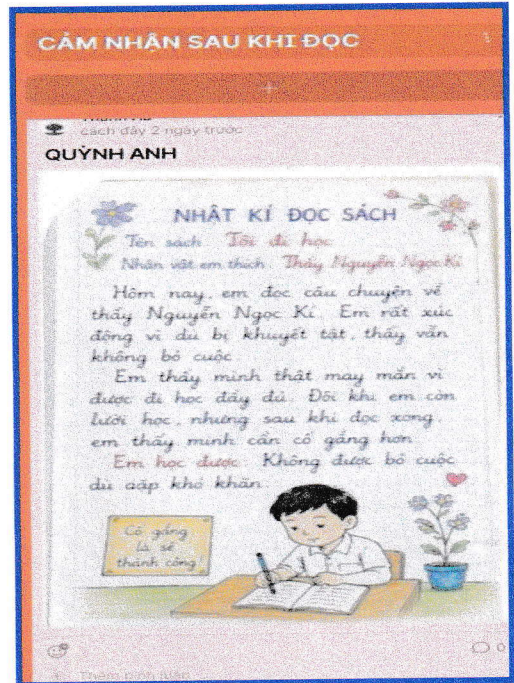 CẢM NHẬN SAU KHI ĐỌC
cách đây 2 ngày trước
QUỲNH ANH
NHẬT KÍ ĐỌC SÁCH
Tên sách: Tôi đi học
Nhân vật em thích: Thầy Nguyễn Ngọc Kí
Hôm nay, em đọc câu chuyện về
thầy Nguyễn Ngọc Kí. Em rất xúc
động vì dù bị khuyết tật, thầy vẫn
không bỏ cuộc.
Em thấy mình thật may mắn vì
được đi học đầy đủ. Đôi khi em còn
lười học, nhưng sau khi đọc xong,
em thấy mình cần cố gắng hơn.
Em học được: Không được bỏ cuộc
dù gặp khó khăn.
Cố gắng
là sẽ
thành công
0
Thêm bình luận